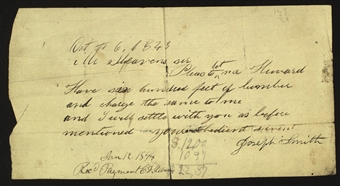 Oct 6, 1843
Mr Stevens sir
Please let Mr Howard
Have six hundred feet of lumber
and charge the same to me
and I will settle with you as before
mentioned your obedient servant
Joseph Smith
Jan 12 1844
Recd Payment